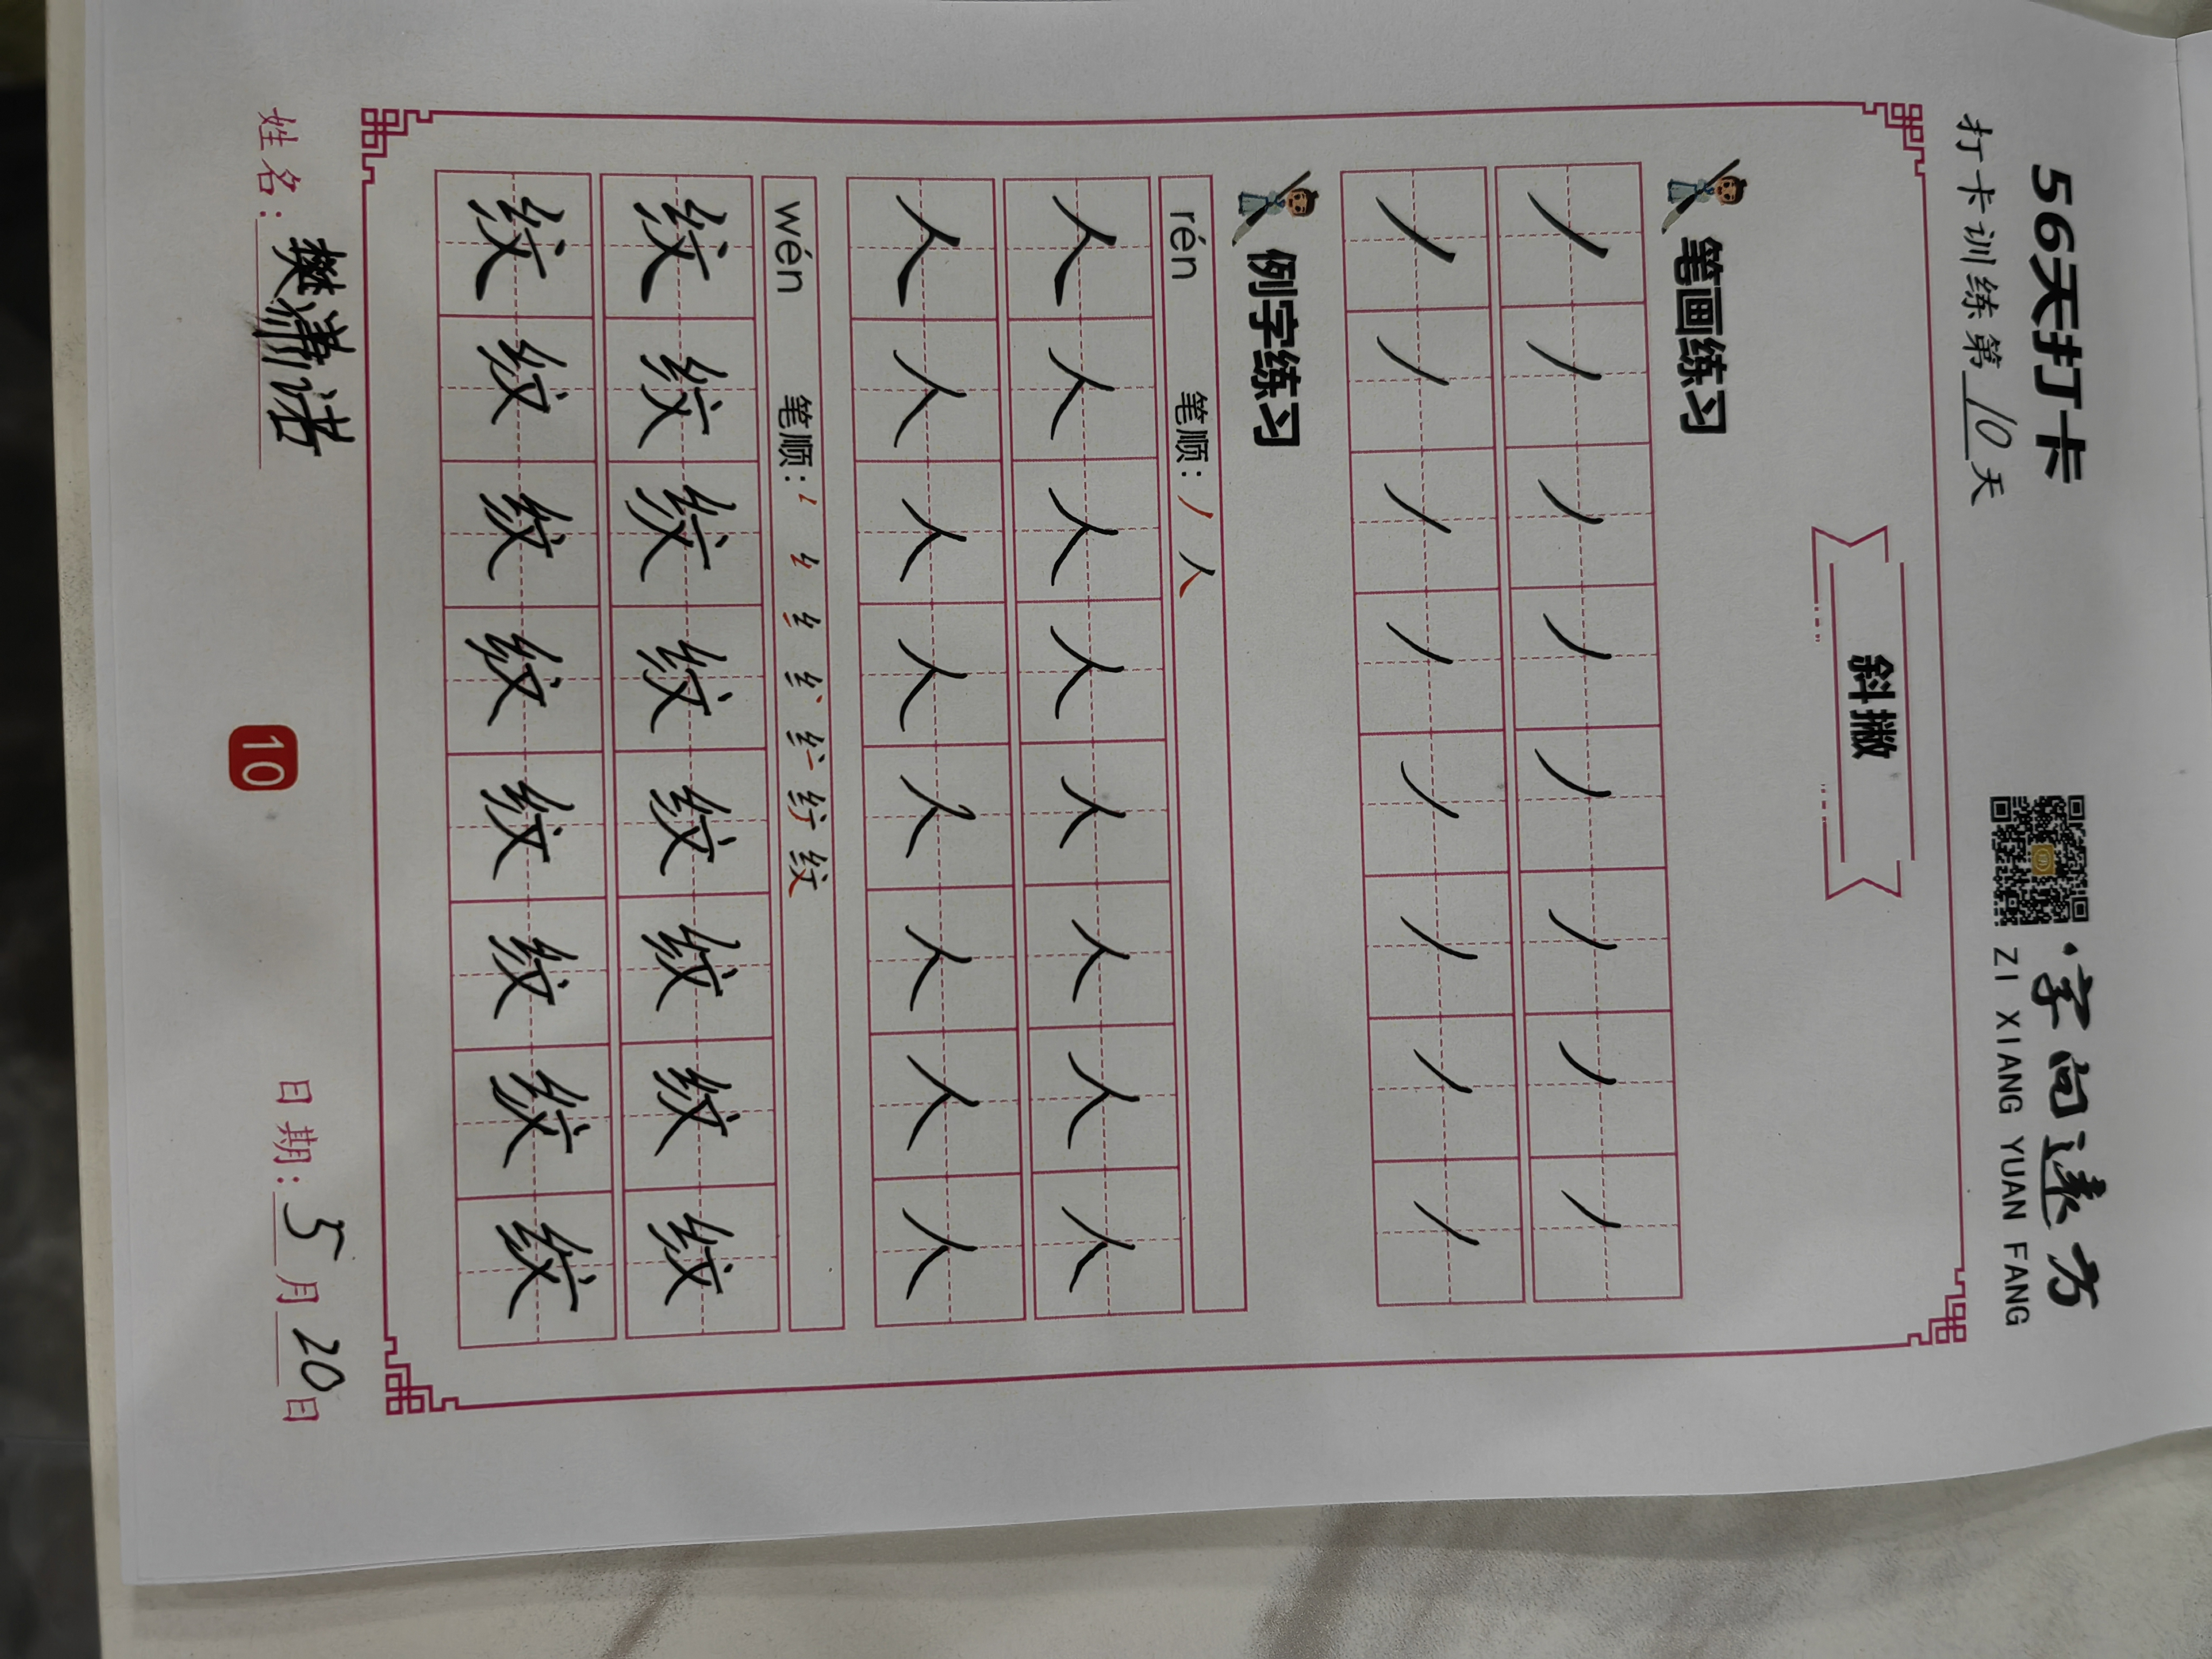 56天打卡
字向远方
打卡训练第10天
ZI XIANG YUAN FANG
斜撇
笔画练习
丿丿丿丿丿丿丿丿
丿丿丿丿丿丿丿丿
例字练习
rén 笔顺: 丿 人
人人人人人人人人
人人人人人人人人
wén 笔顺:
纹
纹纹纹纹纹纹纹纹
纹纹纹纹纹纹纹纹
姓名: 樊潇诺 日期: 5月20日
10